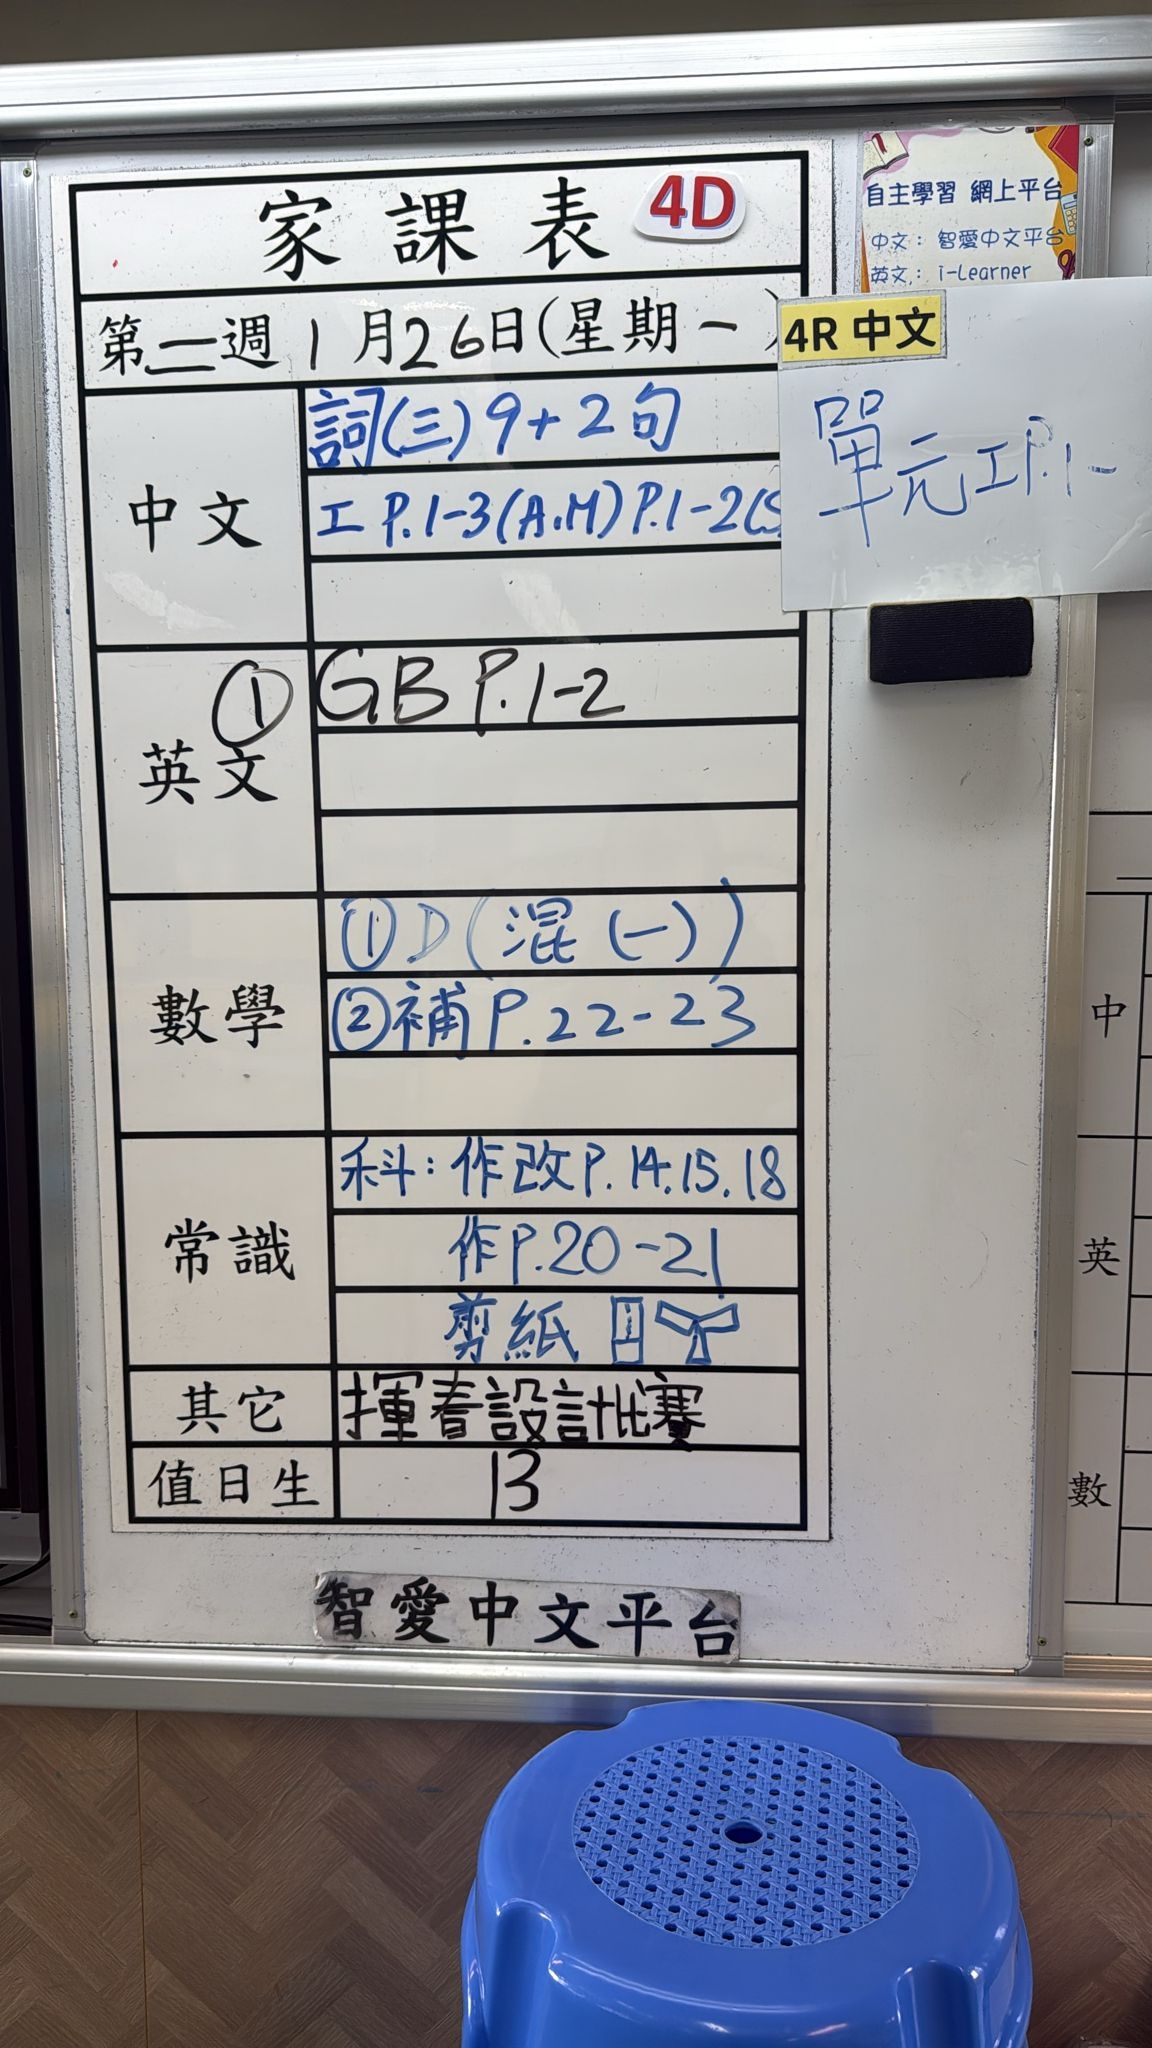 家課表 4D
第二週 1月26日(星期一)
中文
詞(三)9+2句
工P.1-3(A.M)P.1-2(S
英文
① GB P.1-2
數學
①D(混(一))
②補P.22-23
常識
科:作改P.14.15.18
作P.20-21
剪紙
其它
揮春設計比賽
值日生
13
智愛中文平台
自主學習 網上平台
中文: 智愛中文平台
英文: i-Learner
4R 中文
單元工P.1-
中
英
數